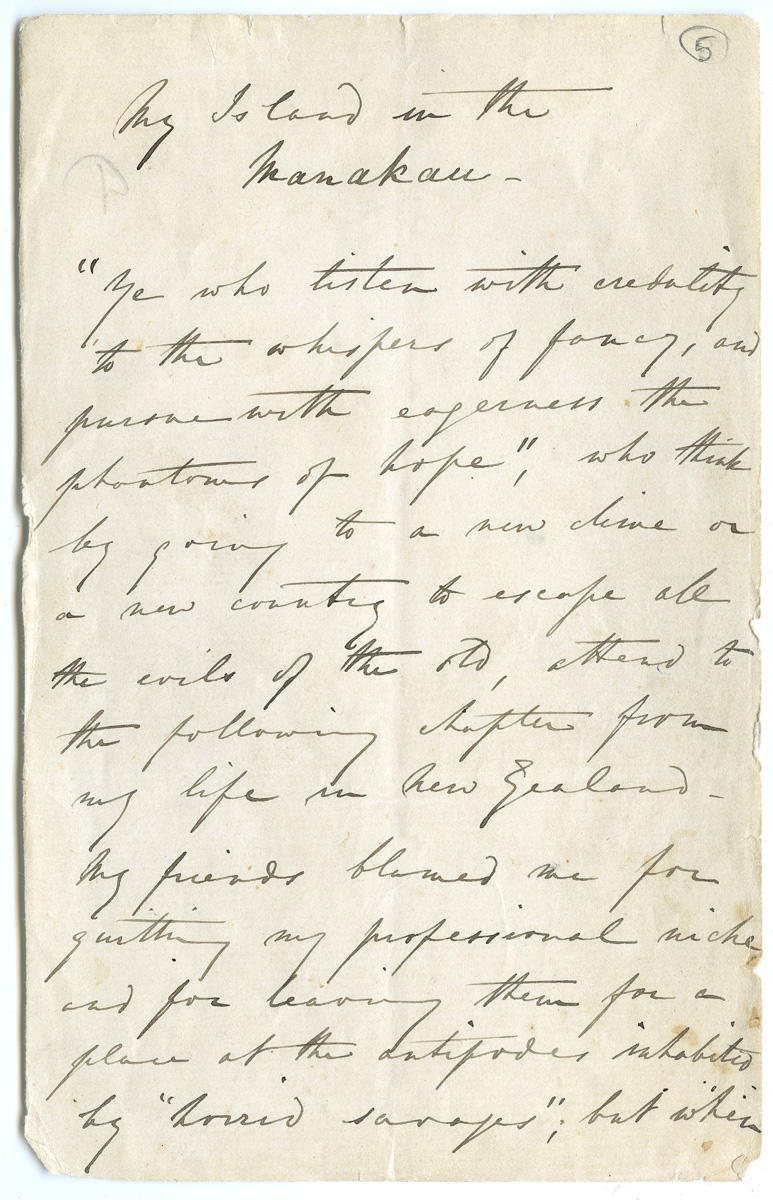 5
My Island in the
Manakau -
"Ye who listen with credulity
to the whispers of fancy, and
pursue with eagerness the
phantoms of hope", who think
by going to a new clime or
a new country to escape all
the evils of the old, attend to
the following chapter from
my life in New Zealand -
My friends blamed me for
quitting my professional niche,
and for leaving them for a
place at the antipodes inhabited
by "horrid savages"; but when